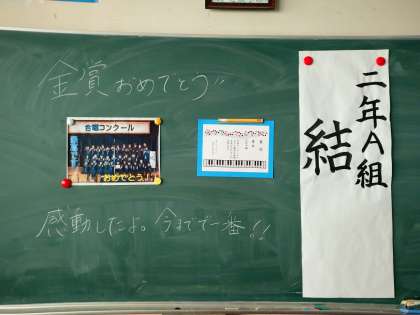 金賞おめでとう!!
合唱コンクール
おめでとう!!
感動したよ。今までで一番!!
二年A組
結